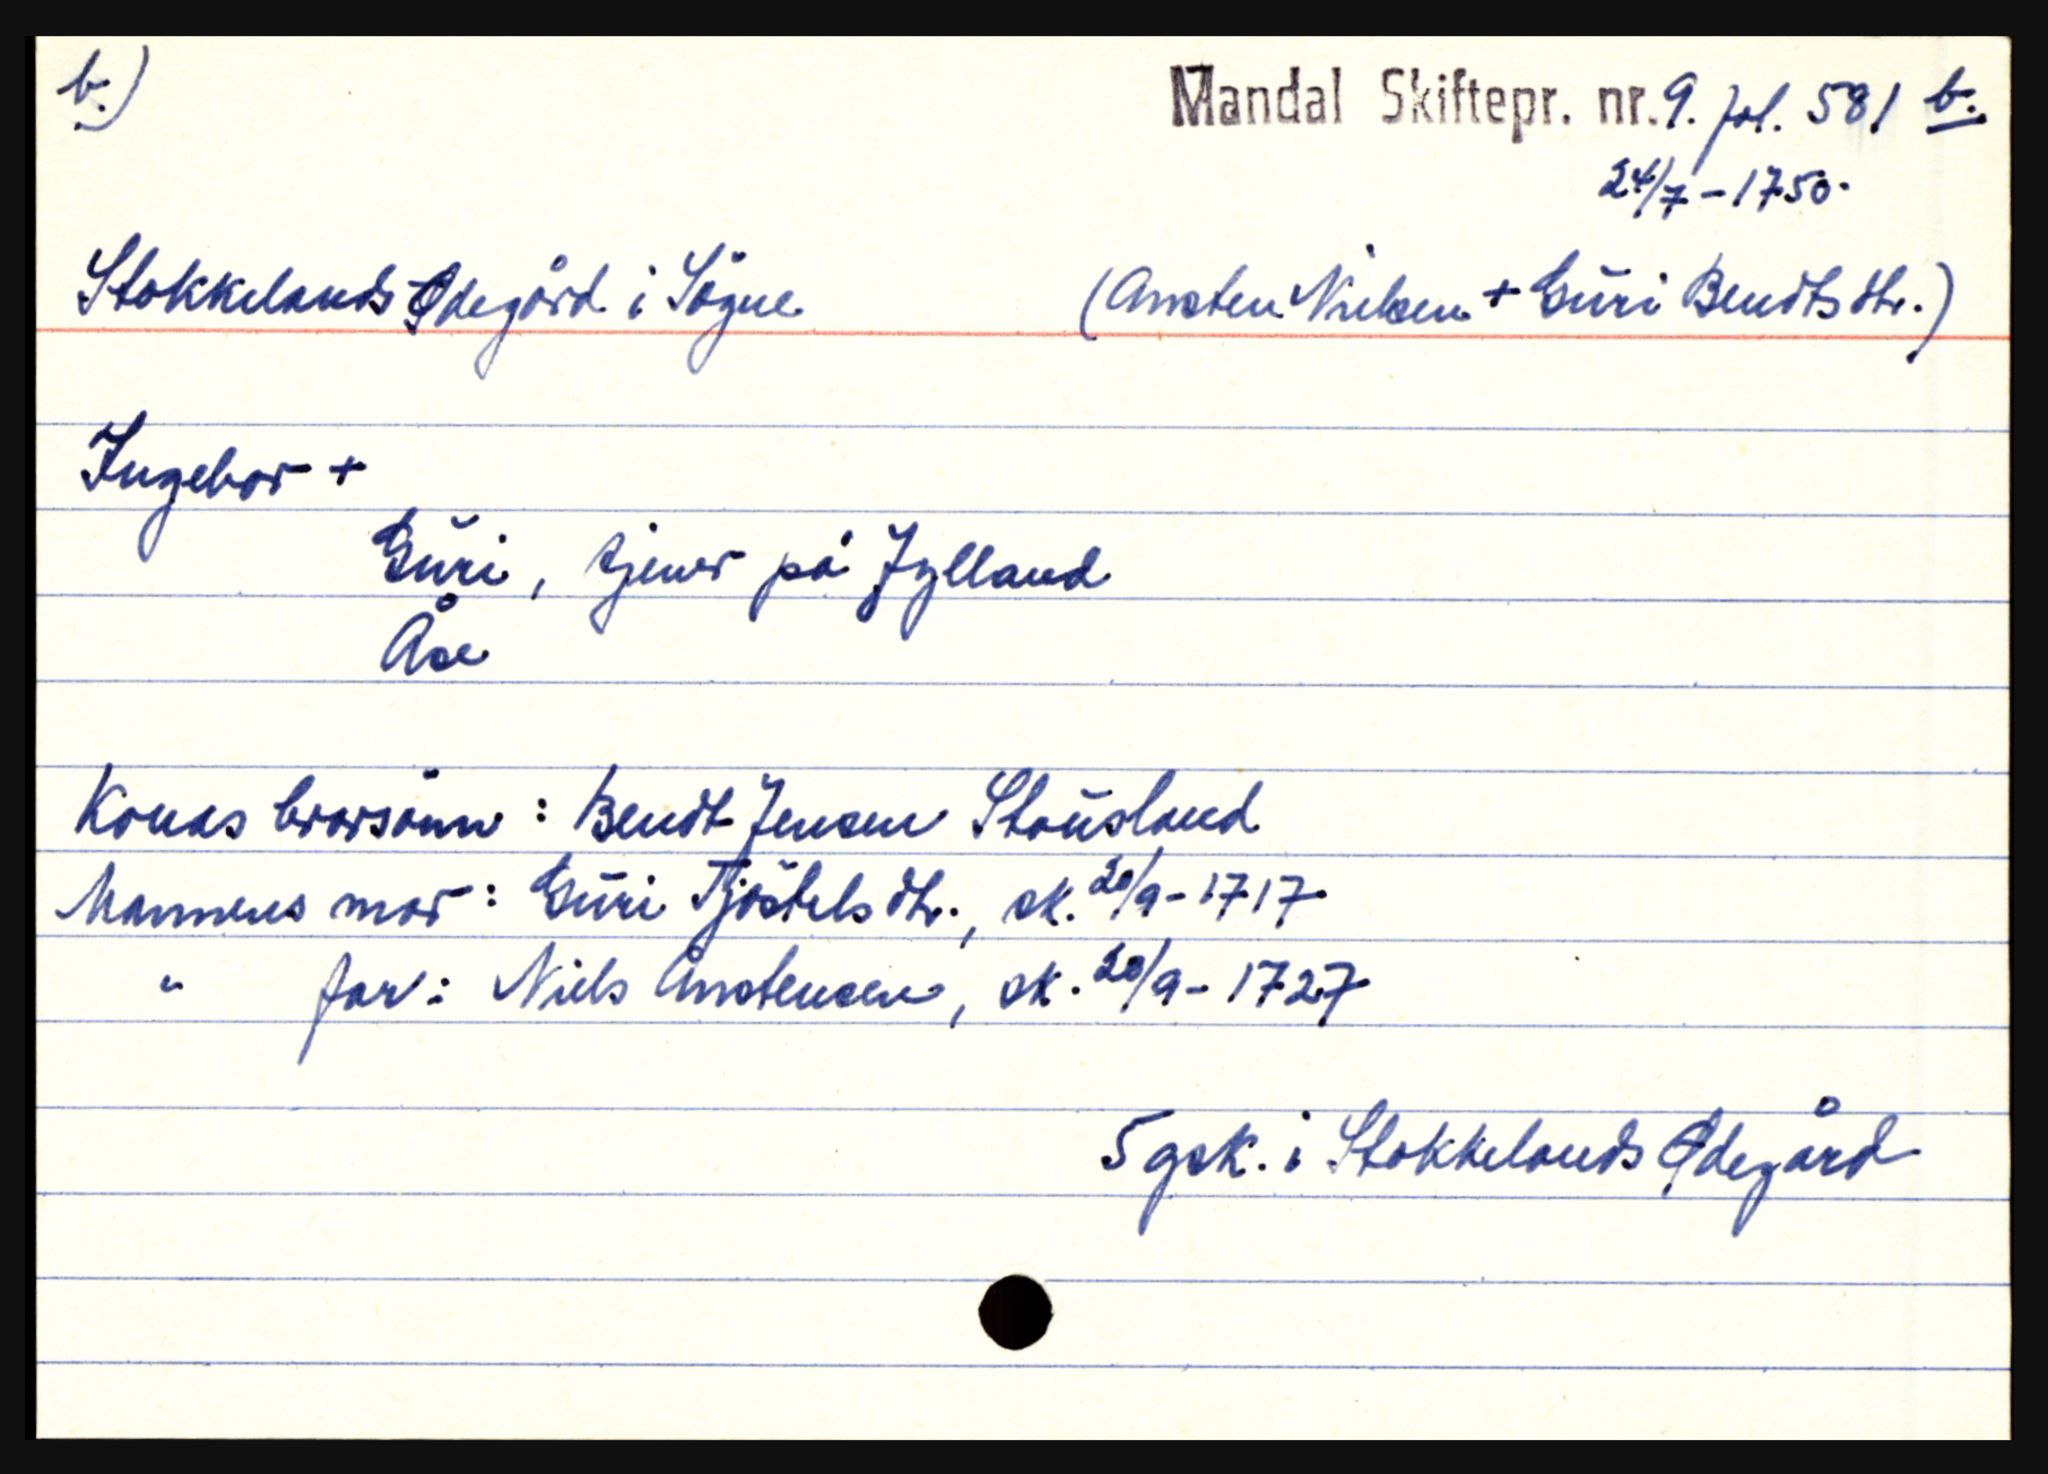 b.)
Mandal Skiftepr. nr. 9. fol. 581 b.
24/7 - 1750.
Stokkelands Ødegård i Sögne (Ansten Nielsen + Gŭri Bendtsdtr.)
Ingebor +
Gŭri, tjener på Jylland
Åse
Konas brorsönn : Bendt Jensen Stoŭsland
Mannens mor : Gŭri Tjöstelsdtr., sk. 20/9 - 1717
" far : Niels Anstensen, sk. 20/9 - 1727
5 gsk. i Stokkelands Ødegård